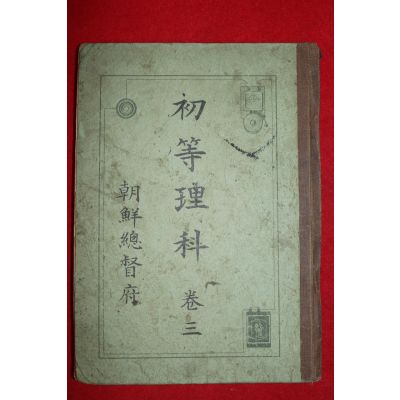 初等理科
卷三
朝鮮總督府